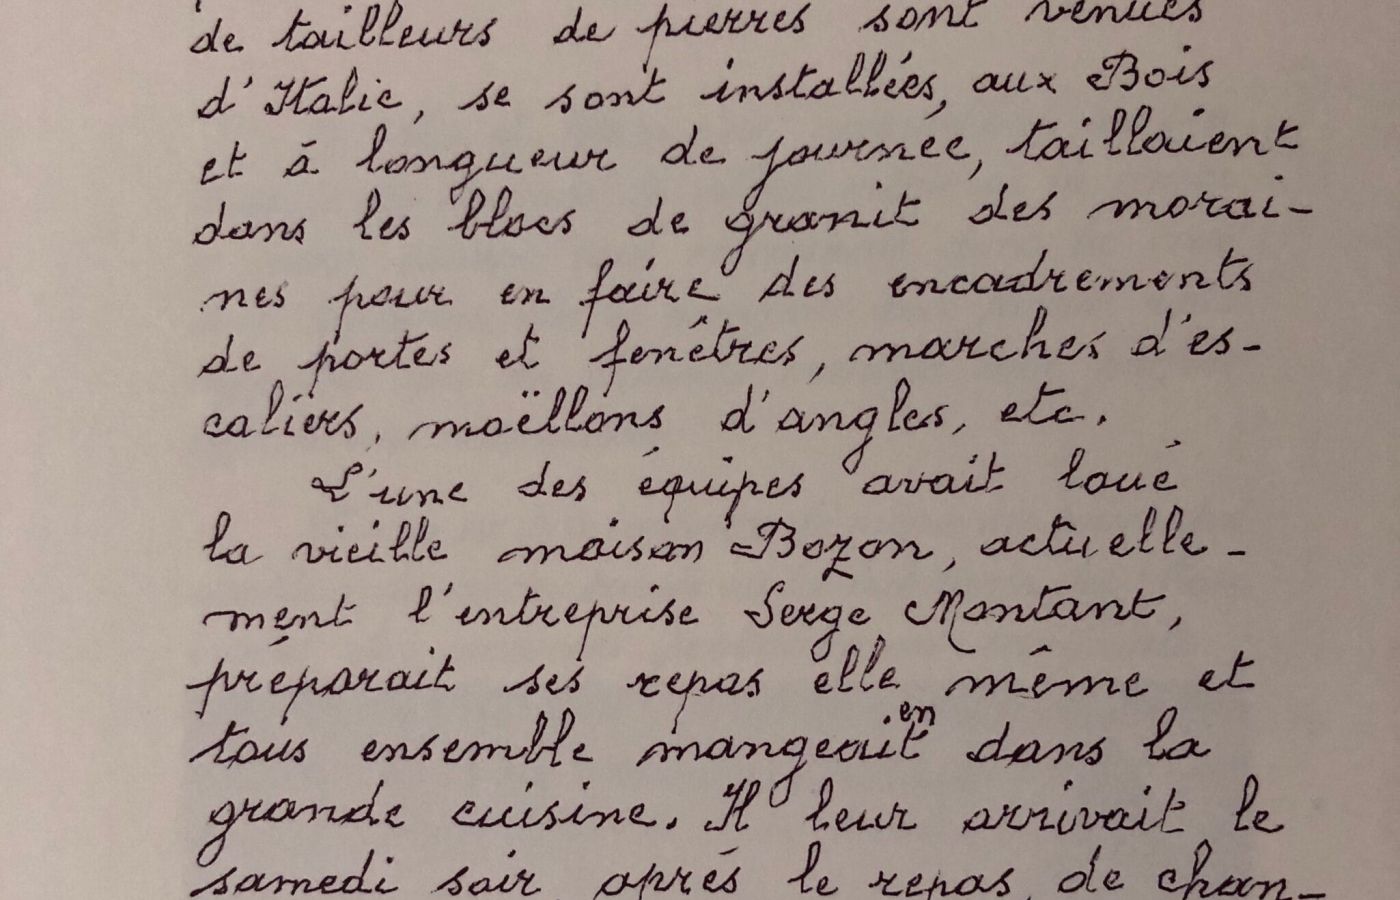 de tailleurs de pierres sont venues
d'Italie, se sont installées, aux Bois
et à longueur de journée, taillaient
dans les blocs de granit des morai-
nes pour en faire des encadrements
de portes et fenêtres, marches d'es-
caliers, moëllons d'angles, etc.
L'une des équipes avait loué
la vieille maison Bozon, actuelle-
ment l'entreprise Serge Montant,
préparait ses repas elle même et
tous ensemble mangeaient dans la
grande cuisine. Il leur arrivait le
samedi soir, après le repas, de chan-